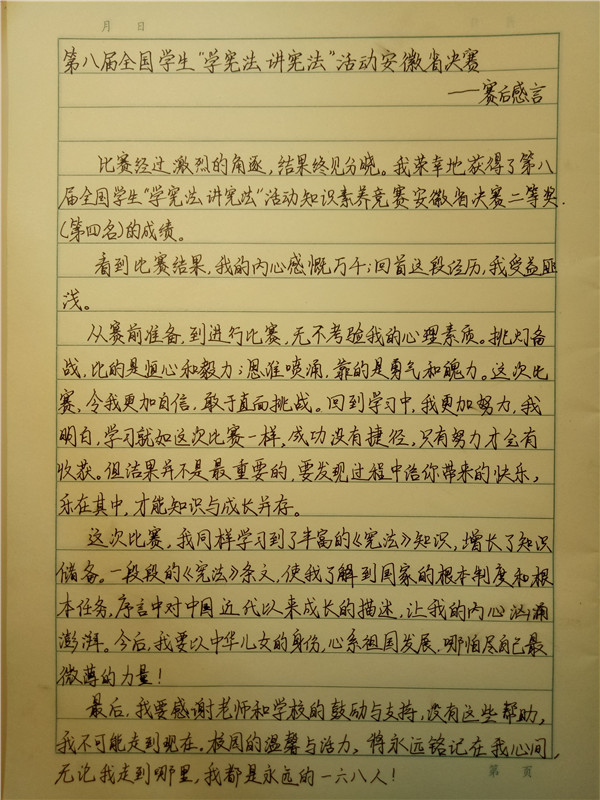 月 日
第八届全国学生“学宪法 讲宪法”活动安徽省决赛
——赛后感言
比赛经过激烈的角逐，结果终见分晓。我荣幸地获得了第八
届全国学生“学宪法 讲宪法”活动知识素养竞赛安徽省决赛二等奖.
(第四名)的成绩。
看到比赛结果，我的内心感慨万千；回首这段经历，我受益匪
浅。
从赛前准备，到进行比赛，无不考验我的心理素质。挑灯备
战，比的是恒心和毅力；思维喷涌，靠的是勇气和魄力。这次比
赛，令我更加自信，敢于直面挑战。回到学习中，我更加努力，我
明白，学习就如这次比赛一样，成功没有捷径，只有努力才会有
收获。但结果并不是最重要的，要发现过程中给你带来的快乐，
乐在其中，才能知识与成长并存。
这次比赛，我同样学习到了丰富的《宪法》知识，增长了知识
储备。一段段的《宪法》条文，使我了解到国家的根本制度和根
本任务，序言中对中国近代以来成长的描述，让我的内心汹涌
澎湃。今后，我要以中华儿女的身份，心系祖国发展，哪怕尽自己最
微薄的力量！
最后，我要感谢老师和学校的鼓励与支持，没有这些帮助，
我不可能走到现在。校园的温馨与活力，将永远铭记在我心间，
无论我走到哪里，我都是永远的一六八人！
第 页